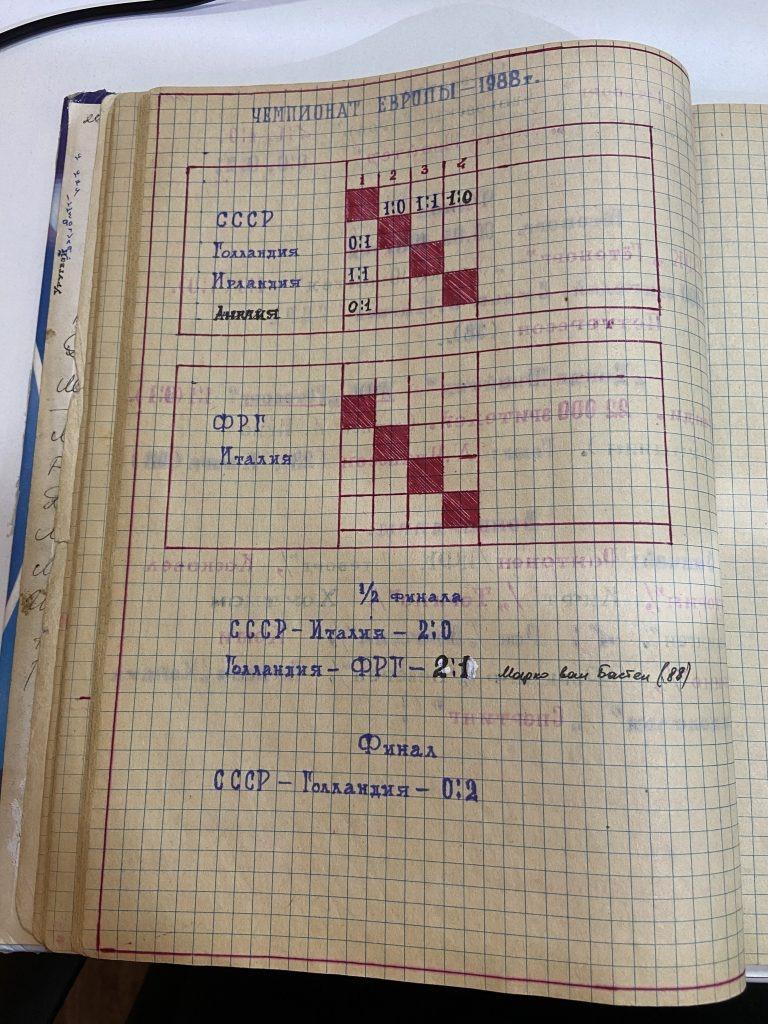 ЧЕМПИОНАТ ЕВРОПЫ - 1988 г.
1 2 3 4
СССР 1:0 1:1 1:0
Голландия 0:1
Ирландия 1:1
Англия 0:1
ФРГ
Италия
1/2 финала
СССР - Италия - 2:0
Голландия - ФРГ - 2:1 Марко ван Бастен (88)
Финал
СССР - Голландия - 0:2